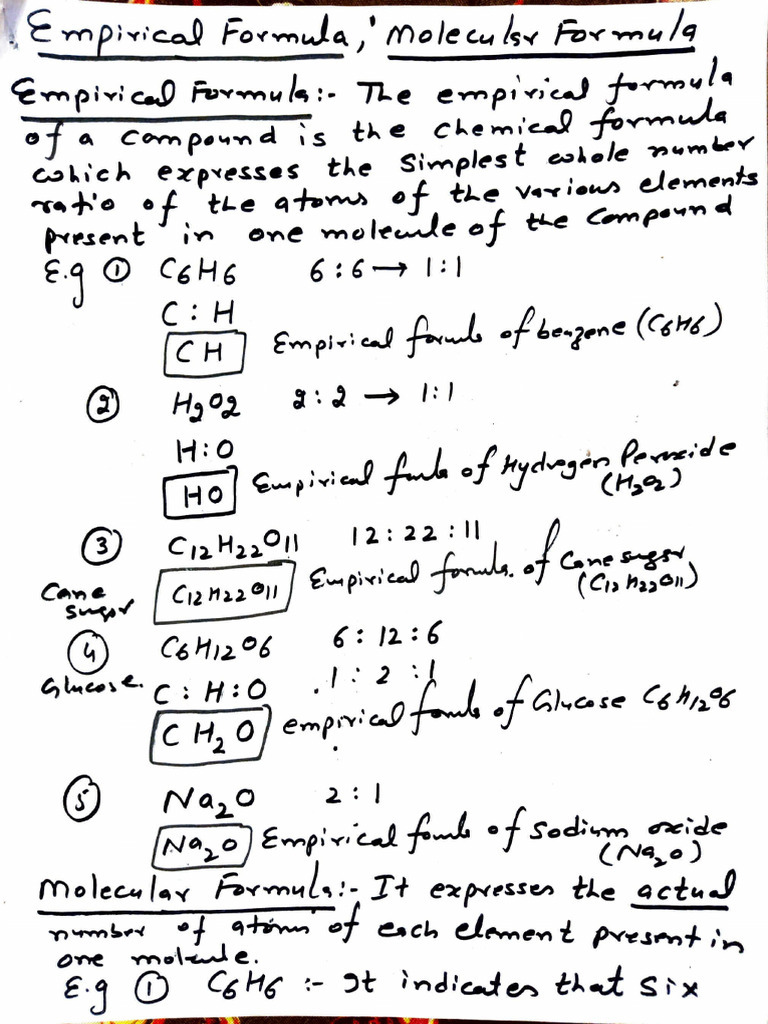 Empirical Formula, Molecular Formula
Empirical Formula:- The empirical formula
of a compound is the chemical formula
which expresses the simplest whole number
ratio of the atoms of the various elements
present in one molecule of the compound
E.g ① C6H6 6:6 → 1:1
C:H
CH Empirical formula of benzene (C6H6)
② H2O2 2:2 → 1:1
H:O
HO Empirical formula of Hydrogen Peroxide
(H2O2)
③ C12H22O11 12:22:11
Cane sugar C12H22O11 Empirical formula of Cane sugar
(C12H22O11)
④ C6H12O6 6:12:6
Glucose. C:H:O 1:2:1
CH2O empirical formula of Glucose C6H12O6
⑤ Na2O 2:1
Na2O Empirical formula of Sodium oxide
(Na2O)
Molecular Formula:- It expresses the actual
number of atoms of each element present in
one molecule.
E.g ① C6H6 :- It indicates that six